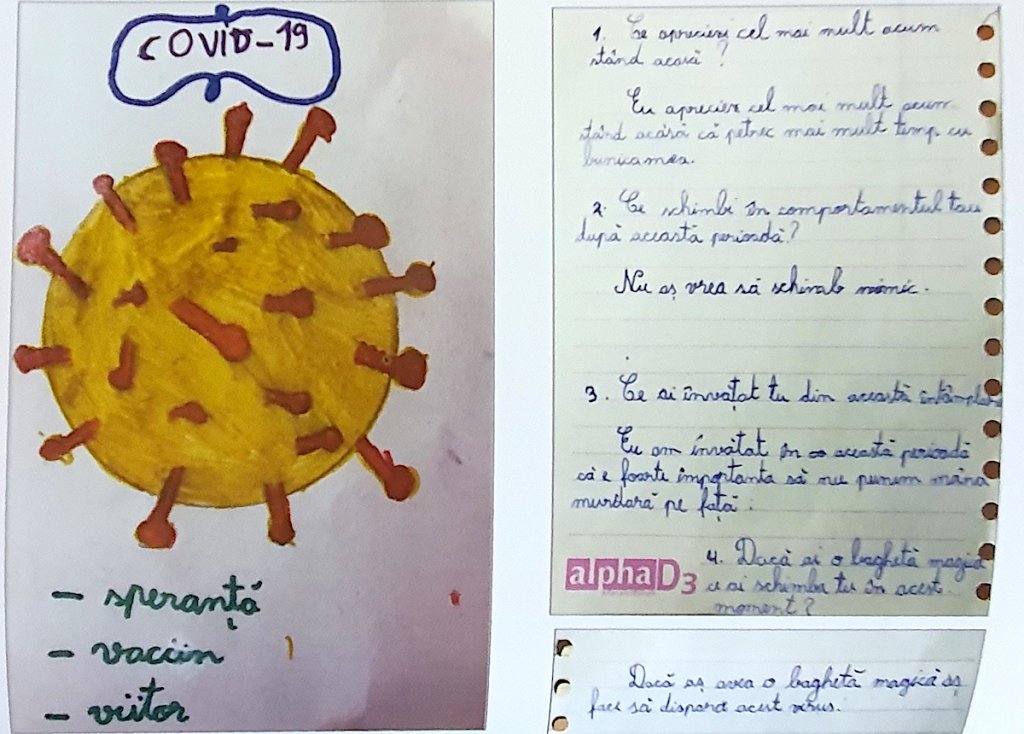 COVID-19
- speranță
- vaccin
- viitor
1. Ce apreciezi cel mai mult acum
stând acasă ?
Eu apreciez cel mai mult acum
stând acasă că petrec mai mult timp cu
bunica mea.
2. Ce schimbi în comportamentul tau
după această perioadă?
Nu aș vrea să schimb nimic.
3. Ce ai învațat tu din această întâmplare
Eu am învătat în această perioadă
că e foarte importanta să nu punem mâna
murdară pe față.
alpha D3
4. Dacă ai o baghetă magică
ce ai schimba tu în acest
moment?
Dacă aș avea o baghetă magică aș
face să dispară acest virus.